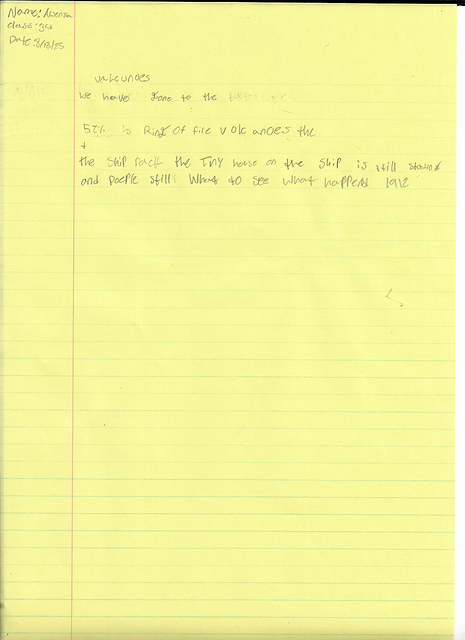 Name:
class: 3rd
Date: 8/13/25
valcunoes
we have gone to the
is Ring Of fire volcanoes the
the Ship rack the Tiny house on the ship is still
and poeple still What to see what happend 1912